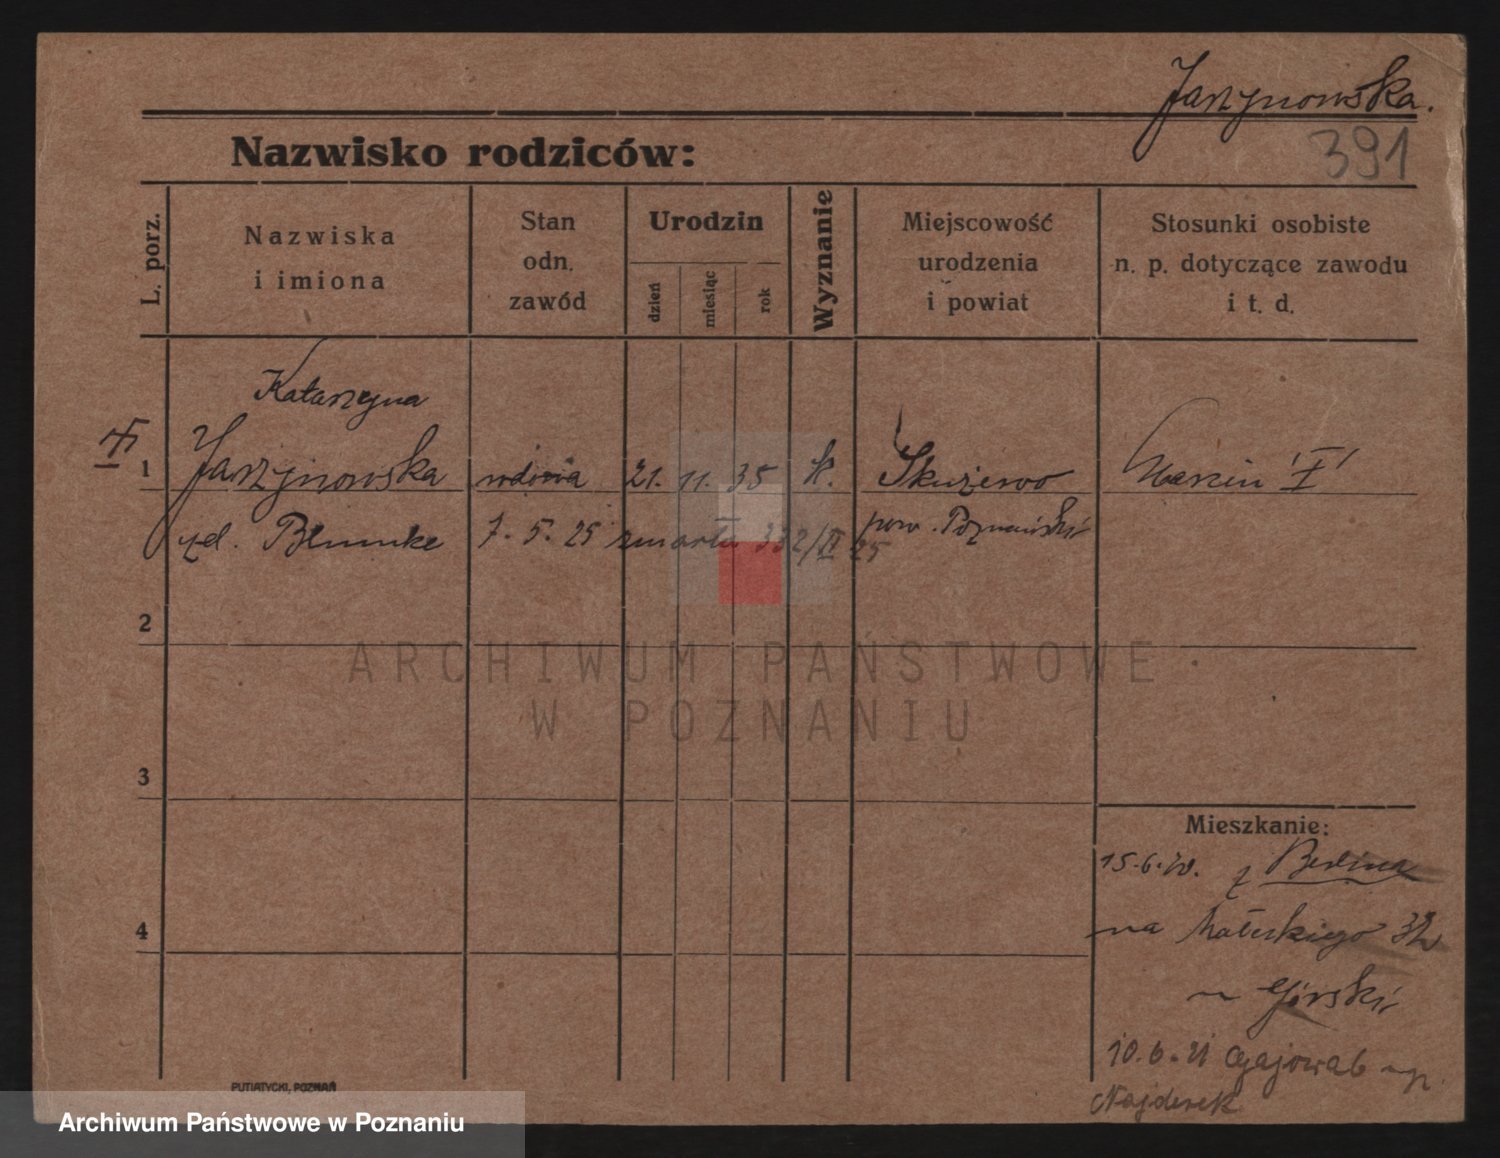 Jarzynowska.
391
Nazwisko rodziców:
L. porz.
Nazwiska
i imiona
Stan
odn.
zawód
Urodzin
dzień
miesiąc
rok
Wyznanie
Miejscowość
urodzenia
i powiat
Stosunki osobiste
n. p. dotyczące zawodu
i t. d.
Katarzyna
1
Jarzynowska
wdowa
21. 11. 35
K.
pow. Poznański
7. 5. 25 zmarła 332/II 25
2
ARCHIWUM PAŃSTWOWE
W POZNANIU
3
Mieszkanie:
15.6.20. z Berlina
4
na Małeckiego 32
Górski
10.6.21 Gajowa 6
Najderek
PUTIATYCKI, POZNAŃ
Archiwum Państwowe w Poznaniu